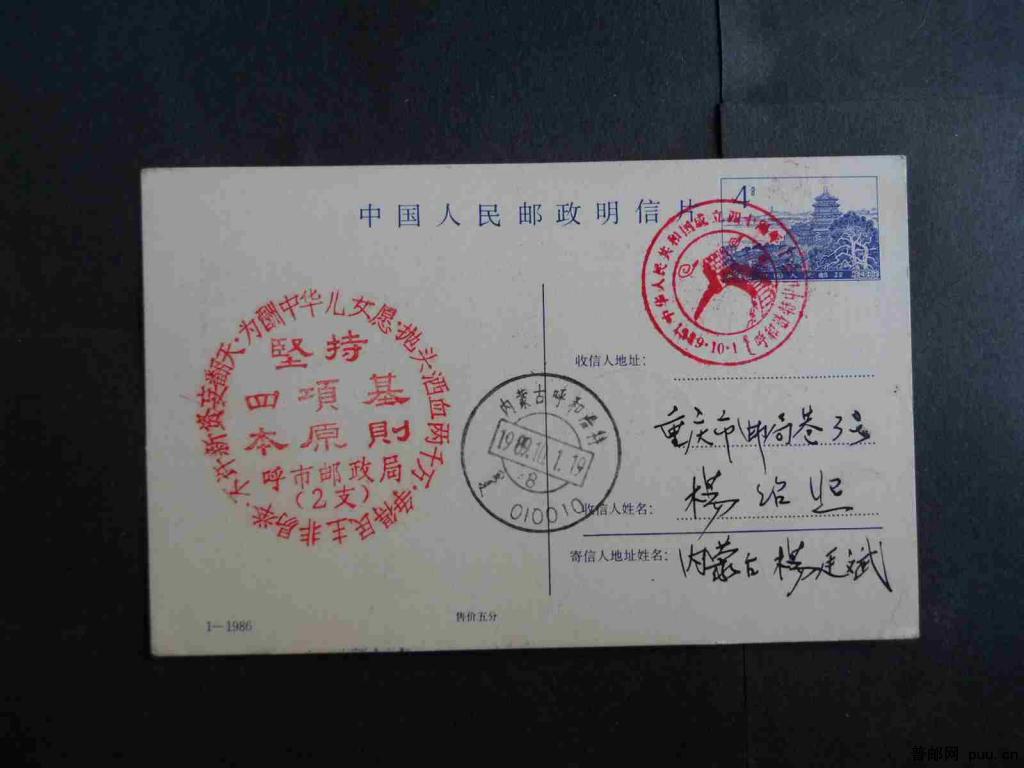 中国人民邮政明信片
4分
中华人民共和国成立四十周年
1989·10·1
为酬中华儿女愿·抛头洒血两千万·争得民主非易举·不许新资妄翻天·
堅持
四項基
本原則
呼市邮政局
(2支)
内蒙古呼和浩特
1989.10.1.19
8
010010
收信人地址：
重庆市邮局巷3号
收信人姓名：
楊绍熙
寄信人地址姓名：
内蒙古 楊廷斌
售价五分
1—1986
普邮网 puu.cn